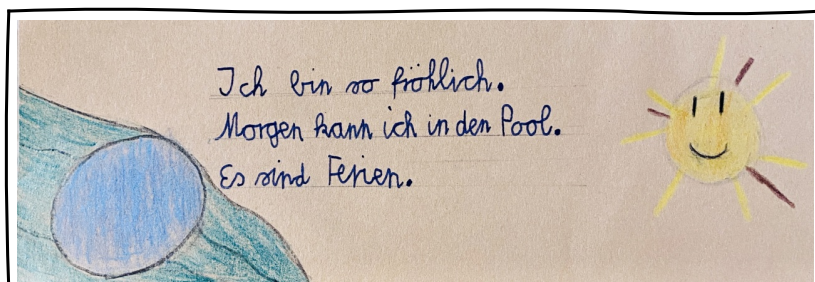 Ich bin so fröhlich.
Morgen kann ich in den Pool.
Es sind Ferien.